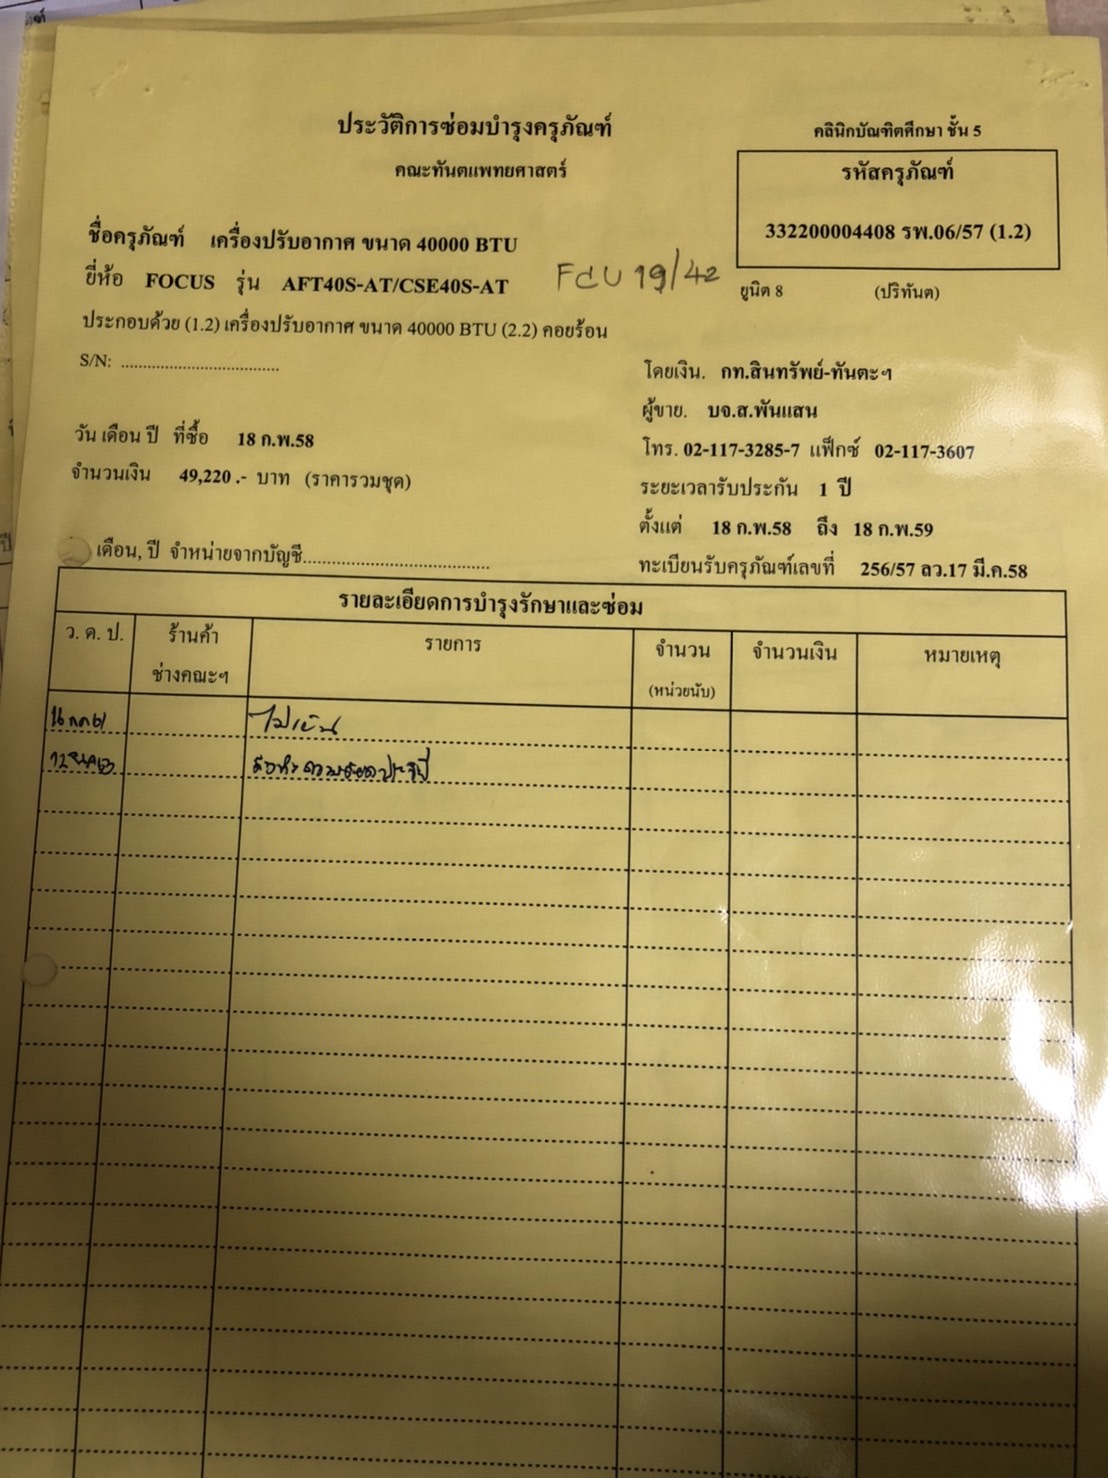 ประวัติการซ่อมบำรุงครุภัณฑ์
คณะทันตแพทยศาสตร์
คลินิกบัณฑิตศึกษา ชั้น 5
รหัสครุภัณฑ์
332200004408 รพ.06/57 (1.2)
ยูนิต 8 (ปริทันต)
ชื่อครุภัณฑ์ เครื่องปรับอากาศ ขนาด 40000 BTU
ยี่ห้อ FOCUS รุ่น AFT40S-AT/CSE40S-AT
FCU 19/42
ประกอบด้วย (1.2) เครื่องปรับอากาศ ขนาด 40000 BTU (2.2) คอยร้อน
S/N: ....................................
วัน เดือน ปี ที่ซื้อ 18 ก.พ.58
จำนวนเงิน 49,220.- บาท (ราคารวมชุด)
เดือน, ปี จำหน่ายจากบัญชี....................................
โดยเงิน. กท.สินทรัพย์-ทันตะฯ
ผู้ขาย. บจ.ส.พันแสน
โทร. 02-117-3285-7 แฟ็กซ์ 02-117-3607
ระยะเวลารับประกัน 1 ปี
ตั้งแต่ 18 ก.พ.58 ถึง 18 ก.พ.59
ทะเบียนรับครุภัณฑ์เลขที่ 256/57 ลว.17 มี.ค.58
รายละเอียดการบำรุงรักษาและซ่อม
ว. ด. ป. ร้านค้า ช่างคณะฯ รายการ จำนวน (หน่วยนับ) จำนวนเงิน หมายเหตุ
ไม่เย็น